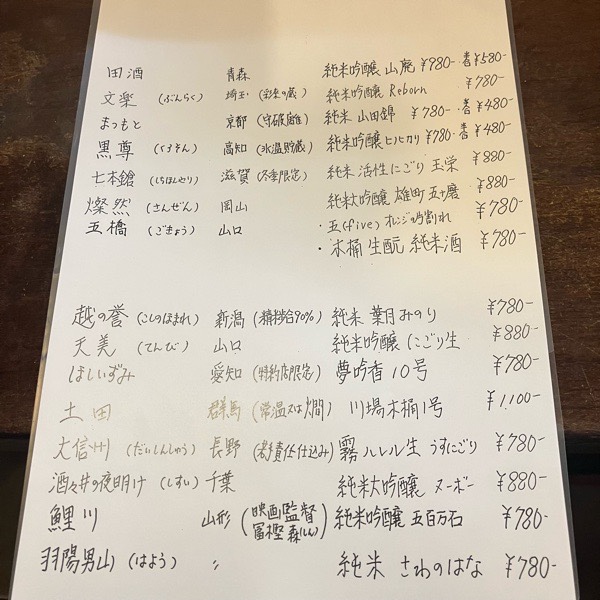 田酒 青森 純米吟醸 山廃 ¥980- ¥580-
文楽 (ぶんらく) 埼玉 純米吟醸 Reborn ¥780-
まつもと 京都 (守破離) 純米 山田錦 ¥780- ¥480-
黒尊 (くろそん) 高知 (氷温貯蔵) 純米吟醸 ヒノヒカリ ¥780- ¥480-
七本鎗 (しちほんやり) 滋賀 (冬季限定) 純米 活性にごり 玉栄 ¥880-
燦然 (さんぜん) 岡山 純米大吟醸 雄町 五十磨 ¥880-
五橋 (ごきょう) 山口 ・五(five) オレンジの片割れ ¥780-
・木桶 生酛 純米酒 ¥780-
越の誉 (こしのほまれ) 新潟 (精米歩合90%) 純米 葉月みのり ¥780-
天美 (てんび) 山口 純米吟醸 にごり生 ¥880-
ほしいずみ 愛知 (特約店限定) 夢吟香 10号 ¥780-
土田 群馬 (常温又は燗) 川場木桶1号 ¥1,100-
大信州 (だいしんしゅう) 長野 霧ハレル生 うすにごり ¥780-
酒々井の夜明け (しすい) 千葉 純米大吟醸 ヌーボー ¥880-
鯉川 山形 (映画監督 冨樫森(しん)) 純米吟醸 五百万石 ¥780-
羽陽男山 (はよう) 〃 純米 さわのはな ¥780-